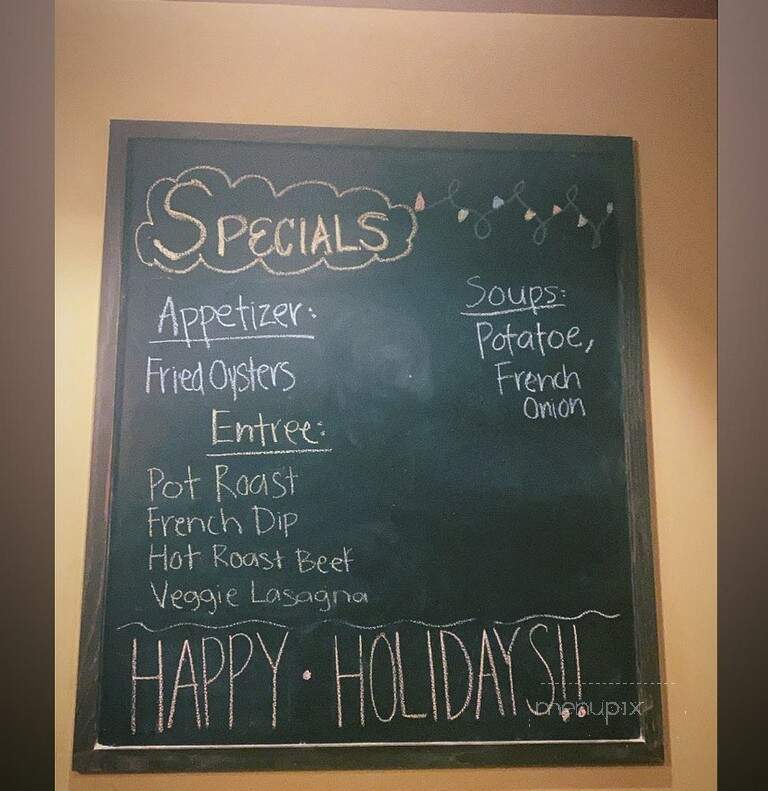 SPECIALS
Appetizer:
Fried Oysters
Soups:
Potatoe,
French
Onion
Entree:
Pot Roast
French Dip
Hot Roast Beef
Veggie Lasagna
HAPPY • HOLIDAYS!!
menupix